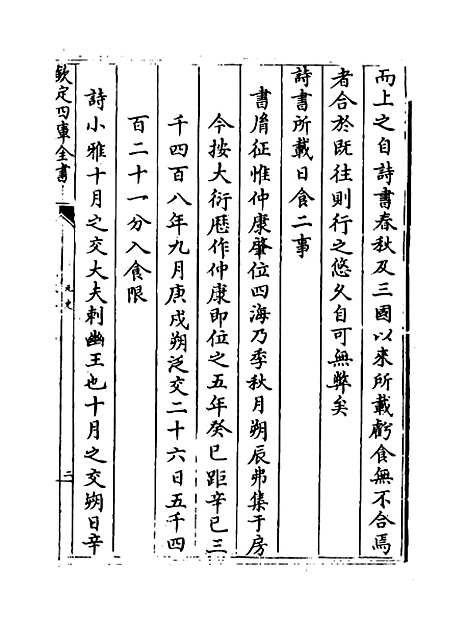 而上之自詩書春秋及三國以來所載虧食無不合焉
者合於既往則行之悠久自可無弊矣
詩書所載日食二事
書胤征惟仲康肇位四海乃季秋月朔辰弗集于房
今按大衍歴作仲康即位之五年癸巳距辛巳三
千四百八年九月庚戌朔泛交二十六日五千四
百二十一分入食限
詩小雅十月之交大夫刺幽王也十月之交朔日辛
欽定四庫全書
元史
二